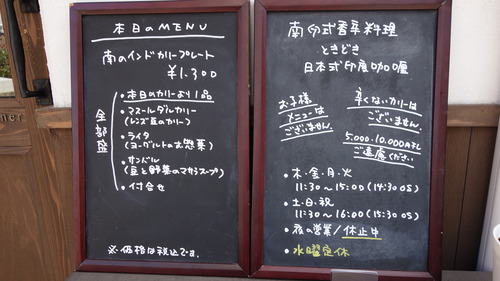 本日のMENU
南のインドカリープレート
¥1,300
全部盛
・本日のカリーより1品
・マスールダルカリー
(レンズ豆のカリー)
・ライタ
(ヨーグルトのお惣菜)
・サンバル
(豆と野菜のマカラスープ)
・付合せ
※価格は税込です。
南印式香辛料理
ときどき
日本式印度咖喱
お子様
メニューは
ございません。
辛くないカリーは
ございません。
5,000・10,000円札
ご遠慮ください
・木・金・月・火
11:30~15:00(14:30 OS)
・土・日・祝
11:30~16:00(15:30 OS)
・夜の営業/休止中
・水曜定休